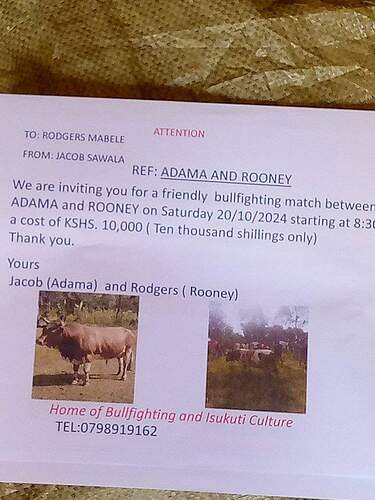 TO: RODGERS MABELE
ATTENTION
FROM: JACOB SAWALA
REF: ADAMA AND ROONEY
We are inviting you for a friendly bullfighting match between
ADAMA and ROONEY on Saturday 20/10/2024 starting at 8:30
a cost of KSHS. 10,000 ( Ten thousand shillings only)
Thank you.
Yours
Jacob (Adama) and Rodgers ( Rooney)
Home of Bullfighting and Isukuti Culture
TEL:0798919162